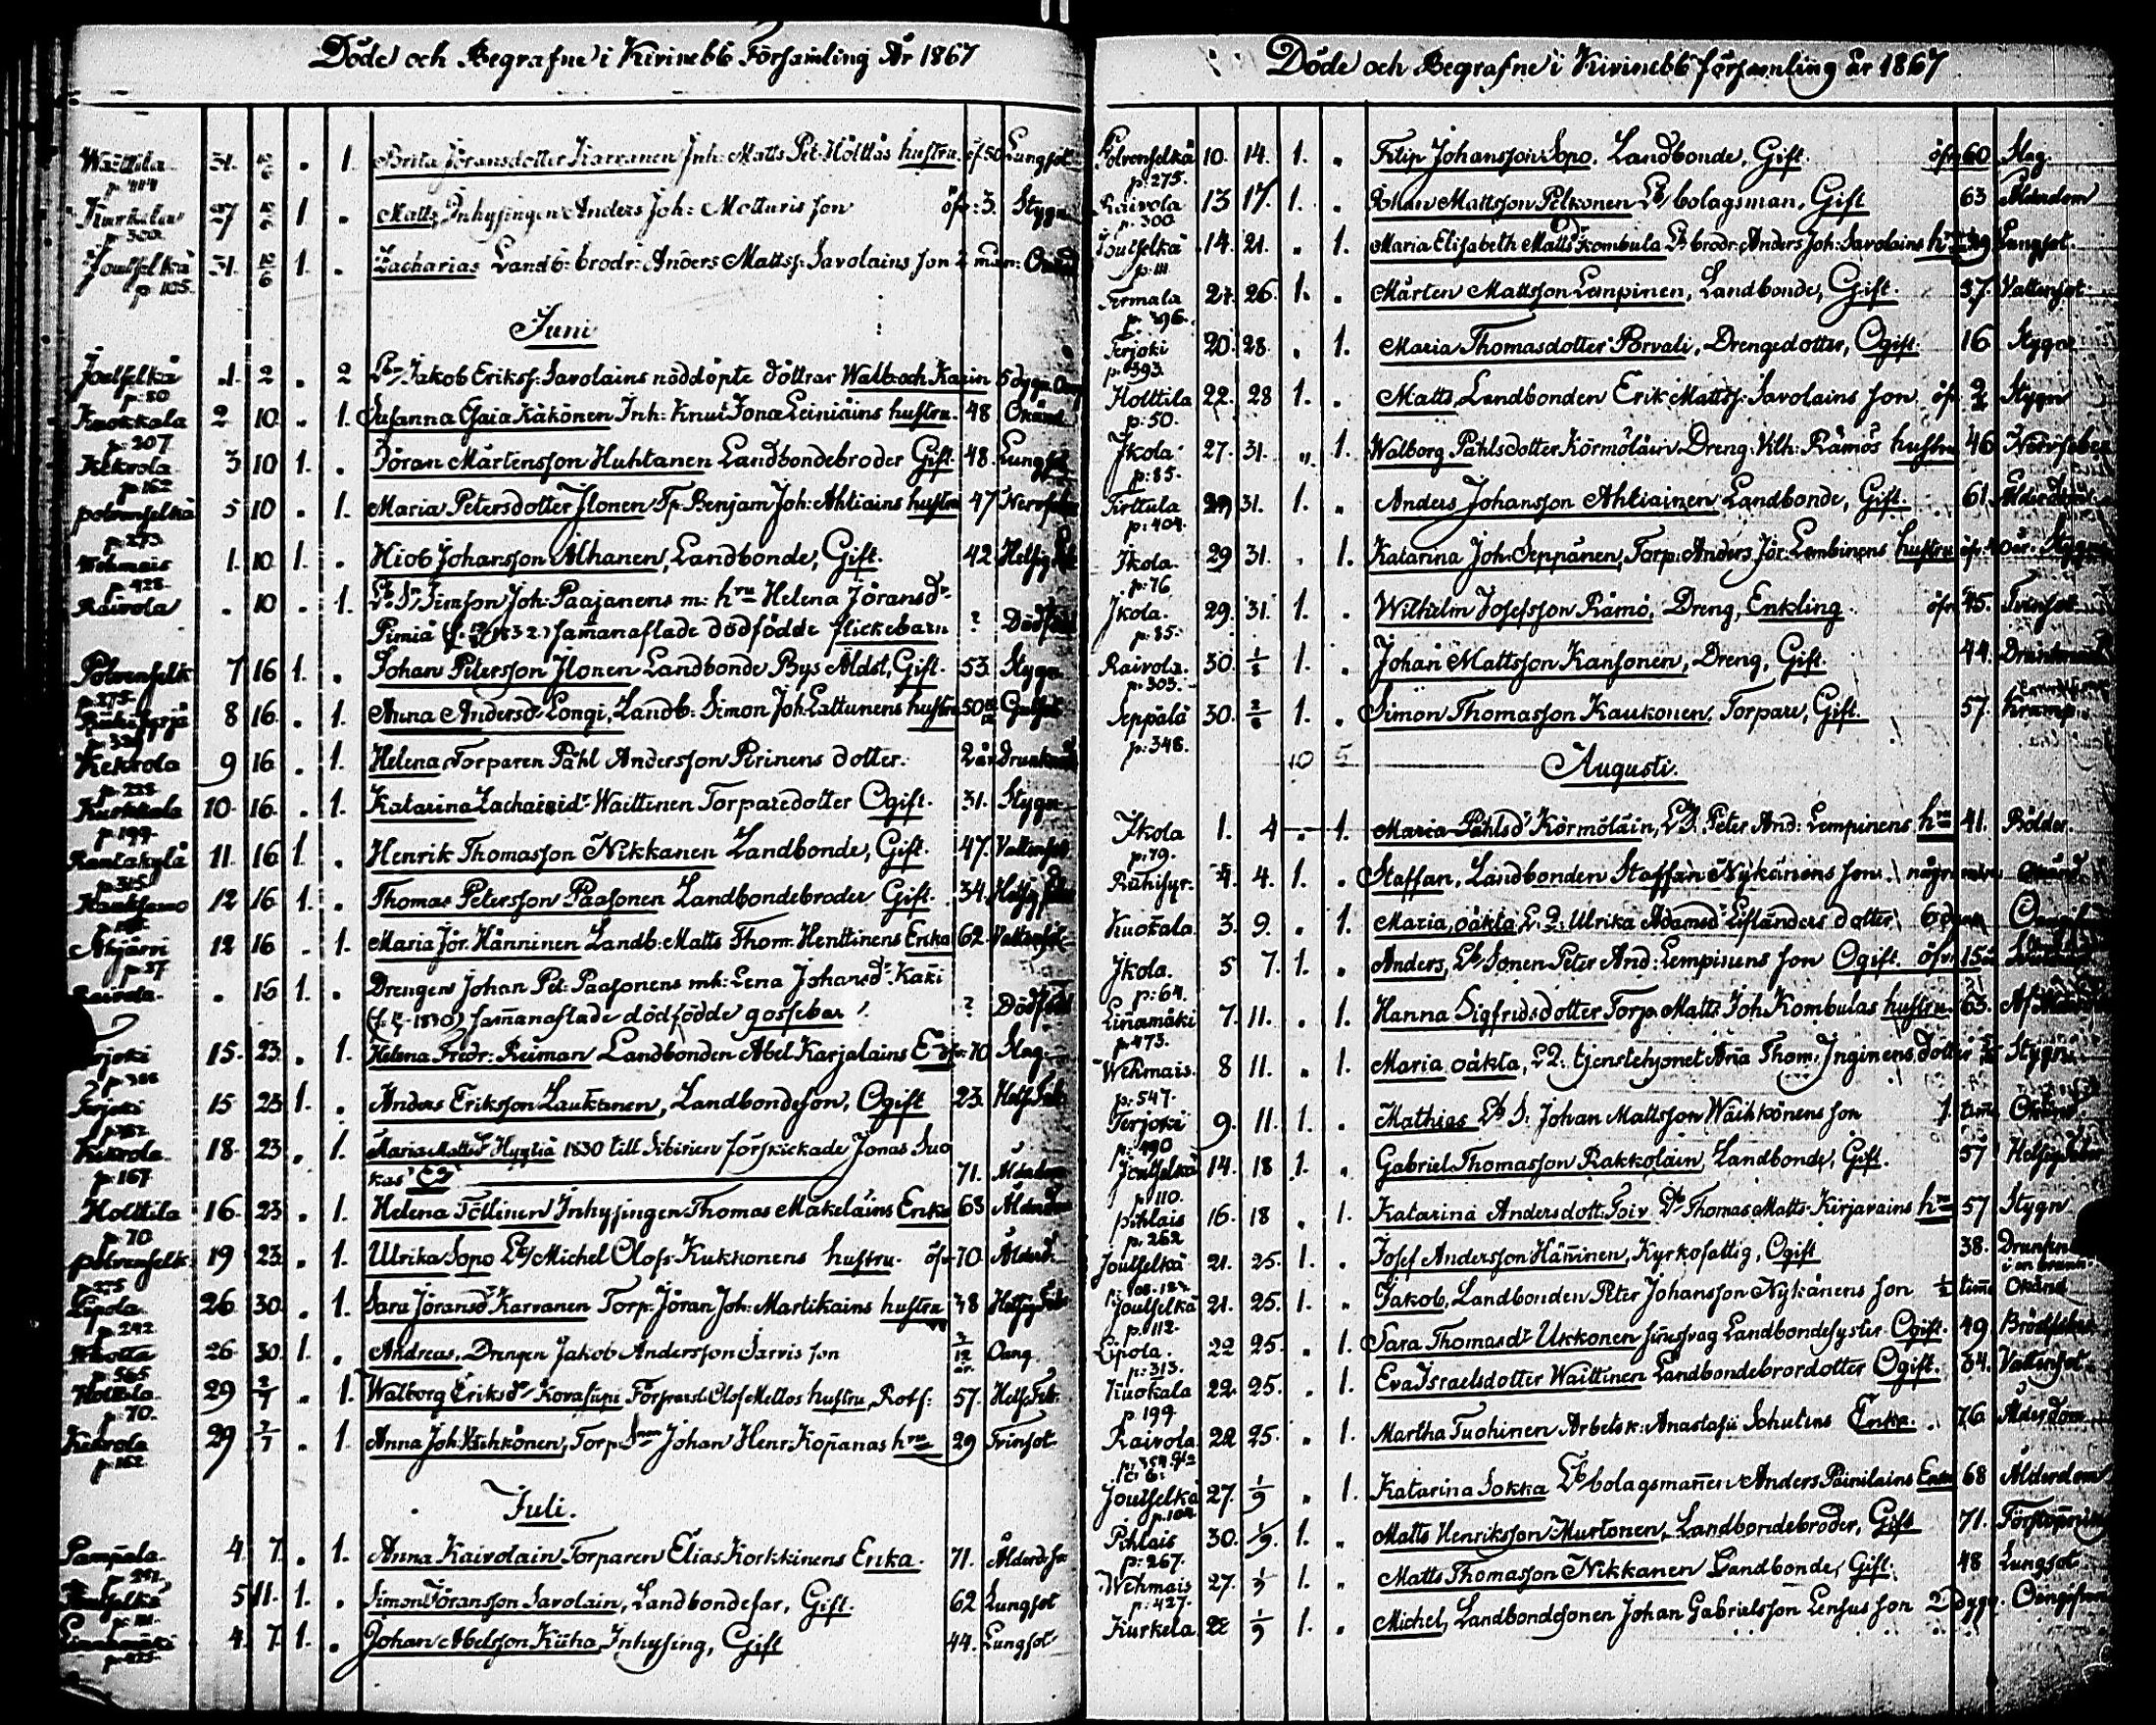 Döde och Begrafne i Kivinebb Församling År 1867
Wättilä 31. 12/6 " 1. Brita Jöransdotter Karvanen Inh: Matts Pet. Hölttäs hustru. öf. 50 Lungsot
p. 444
Kurkela 27 12/6 1. " Matts, Inhysingen Anders Joh: Motturis son öfv: 3. Stygn
p. 300.
Joutselkä 31. 12/6 1. " Zacharias Landb: brodr: Anders Mattss: Savolains son 2 mån: Okänd
p. 105.
Juni
Joutselkä 1. 2 " 2 Lb Jakob Erikss: Savolains nöddöpte döttrar Walb: och Karin 5 dygn
p. 80
Kuokkala 2 10. " 1. Susanna Esaia Käkönen Inh: Knut Jonæ Leiniäins hustru. 48 Okänd
p. 207
Kekrola 3 10 1. " Jöran Mårtensson Huhtanen Landbondebroder Gift. 48. Lungsot
p. 162
polvenselkä 5 10 " 1. Maria Petersdotter Ilonen Tp. Benjam Joh: Ahtiains hustru 47 Nervfeber
p. 273.
Wehmais 1. 10 1. " Hiob Johansson Ålhanen, Landbonde, Gift. 42
p. 428.
Raivola " 10 " 1. Lb. Sn Simson Joh: Paajanens m: hru Helena Jöransdr
Pimiä (f. 1832.) samanaflade dödfödde flickebarn ? Dödfödd
Polvenselk 7 16 1. " Johan Petersson Ilonen Landbonde Bys Äldst, Gift. 53. Stygn
p. 275.
8 16. " 1. Anna Andersdr Longi, Landb: Simon Joh: Lattunens hustru 50
Kekrola 9 16 " 1. Helena Torparen Påhl Andersson Pirinens dotter. 2 år Drunknad
p. 228.
10. 16. " 1. Katarina Zachariædr Waittinen Torparedotter Ogift. 31. Stygn
p. 199.
Rantakylä 11. 16 1. " Henrik Thomasson Nikkanen Landbonde, Gift. 47. Vattensot
p. 315.
12 16 1. " Thomas Petersson Paasonen Landbondebroder Gift. 34.
Ahjärvi 12 16 " 1. Maria Jör. Hänninen Landb: Matts Thom: Henttinens Enka 62. Vattensot
p. 37
Raivola. " 16 1. " Drengen Johan Pet: Paasonens m h: Lena Johansdr Kaki
(f. 1830) samanaflade dödfödde gossebar ? Dödfödd
15. 23. " 1. Helena Fredr: Reiman Landbonden Abel Karjalains E. öfv: 70 Slag.
Terjoki 15 23 1. " Anders Eriksson Lauktanen, Landbondeson, Ogift 23.
Kekrola 18. 23 " 1. Maria Mattsdr Hyytiä 1830 till Sibirien förskickade Jonas Suo
p. 167. kas Ea 71. Ålderdom
Holttila 16. 23 " 1. Helena Töllinen Inhysingen Thomas Makeläins Enka 63 Ålderdom
p. 70.
polvenselk 19 23. " 1. Ulrika Sopo Lb Michel Olofs Kukkonens hustru. öfv 70 Ålderd.
p. 275
Lipola 26. 30. " 1. Sara Jöransdr Karvanen Torp: Jöran Joh: Martikains hustru 48
p. 242
26. 30. 1. " Andreas, Drengen Jakob Andersson Sarvis son 7/12 år. Oang.
p. 565
Holttila 29 2/7 " 1. Walborg Eriksdr Kovasupi Förpard: Olof Mellos hustru, Rotf: 57. Hets: Feb.
p. 70.
Kekrola 29 2/7 " 1 Anna Joh: Wäihkönen, Torp: Snn Johan Henr: Kopanas hru 29 Tvinsot
p. 162
Juli.
Pampala. 4. 7. " 1. Anna Kaivolain Torparen Elias Korkkinens Enka. 71.
5 11. 1. " Simon Jöransson Savolain, Landbondefar, Gift. 62 Lungsot
p. 111
4. 7. 1. " Johan Abelsson Kiiha, Inhysing, Gift 44. Lungsot
p. 425.
Döde och Begrafne i Kivinebb församling år 1867
Polvenselkä 10. 14. 1. " Filip Johansson Sopo. Landbonde, Gift. öfv 60 Slag.
p. 275.
Raivola 13 17. 1. " Johan Mattsson Pelkonen Lb bolagsman, Gift 63 Ålderdom
p. 300.
Joutselkä 14. 21. " 1. Maria Elisabeth Mattsdr Kombula Lb brodr: Anders Joh: Savolains hru 29 Lungsot.
p. 111
Termala 24. 26. 1. " Mårten Mattsson Lempinen, Landbonde, Gift. 37. Vattensot.
p. 396.
Terjoki 20. 28. " 1. Maria Thomasdotter Porvali, Drengedotter, Ogift. 16 Stygn
p. 393
Holttila 22. 28 1. " Matts, Landbonden Erik Mattss: Savolains son. öfv 2 Stygn
p. 50.
Ikola 27. 31. " 1. Walborg Påhlsdotter Körmöläin Dreng: Wlh: Rämös hustru 46 Nervfeber
p. 85.
Tirttula 29 31. 1. " Anders Johansson Ahtiainen Landbonde, Gift. 61. Ålderdom
p. 404.
Ikola. 29 31. " 1. Katarina Joh: Seppänen, Torp: Anders Jör: Lembinens hustru öfv: 40 år. Stygn
p. 76
Ikola. 29. 31. 1. " Wilhelm Josefsson Rämö, Dreng, Enkling. öfv 45. Tvinsot
p. 85.
Raivola. 30. 1/8 1. " Johan Mattsson Kansonen, Dreng, Gift. 44.
p. 303.
Seppälä 30. 2/8 1. " Simon Thomasson Kaukonen, Torpare, Gift. 57. Kramp.
p. 348.
10 5
Augusti.
Ikola 1. 4 " 1. Maria Påhlsdr Körmöläin, Lb. Peter And: Lempinens hru 41. Bölder.
p. 79.
4. 4. 1. " Staffan, Landbonden Staffan Nykänens son. några Okänd
Kuokala 3. 9. " 1. Maria, oäkta L. Q: Ulrika Adamsd Liflanders dotter 6
Ikola. 5 7. 1. " Anders, Lb Sonen Peter And: Lempinens son Ogift. öfv. 15
p. 64.
Linamäki 7. 11. " 1. Hanna Sigfridsdotter Torp. Matts Joh: Kombulas hustru. 63.
p. 473.
Wehmais. 8 11. " 1. Maria oäkta, L. Q: tjenstehjonet Anna Thom: Inginens dotter Stygn
p. 547.
Terjoki 9. 11. 1. " Mathias Lb S: Johan Mattsson Wäihkönens son 1. tim Okänd
p. 490
Joutselkä 14. 18 1. " Gabriel Thomasson Rakkolain, Landbonde, Gift. 57
p. 110.
pihlais 16. 18 " 1. Katarina Andersdott. Toiv. Lb Thomas Matts: Kirjavains hru 57 Stygn
p. 262
Joutselkä 21. 25. 1. " Josef Andersson Häninen, Kyrkofattig, Ogift 38. Drunkn
i en brunn.
Joutselkä 21. 25. 1. " Jakob, Landbonden Peter Johansson Nykänens son 1/2 tim Okänd
p. 112.
Lipola. 22 25. " 1. Sara Thomasdr Ukkonen sinnssvag Landbondesyster Ogift. 49
p. 313.
Kuokala 22. 25. " 1. Eva Israelsdotter Waittinen Landbondebrordotter Ogift. 34. Vattensot
p. 199
Raivola 22 25. " 1. Martha Tuohinen Arbetsk: Anastasii Schulins Enka. 76 Ålderdom
Joutselkä 27. 1/9 " 1. Katarina Sokka Lb bolagsmannen Anders Päiviläins Enka 68 Ålderdom
p. 104
Pihlais 30. 1/9. 1. " Matts Henriksson Murtonen, Landbondebroder, Gift 71. Förstoppning
p. 267.
Wehmais 27. 1/9 1. " Matts Thomasson Nikkanen Landbonde, Gift. 48 Lungsot
p. 427.
Kurkela 22 1/9 1. " Michel, Landbondesonen Johan Gabrielsson Lensus son 2 dygn.